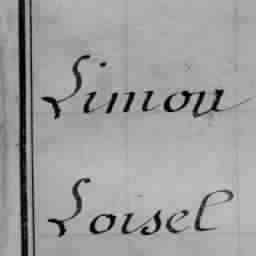 Limou
Loisel